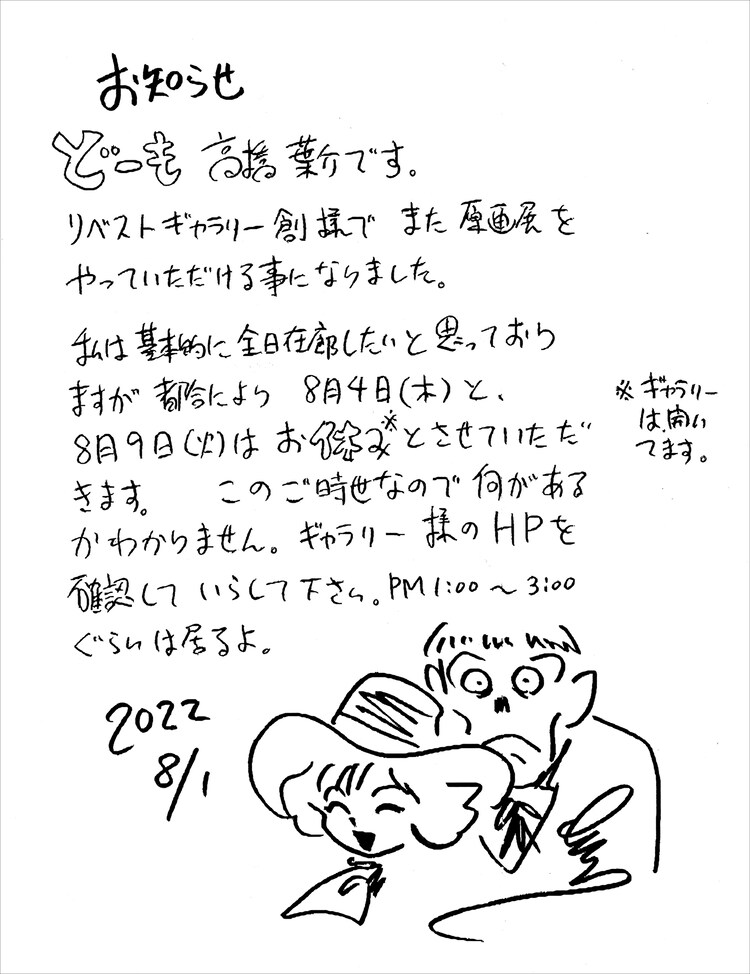 お知らせ
どーも 高橋葉介です。
リベストギャラリー創様で また原画展を
やっていただける事になりました。
私は基本的に全日在廊したいと思っており
ますが 都合により 8月4日(木)と、
8月9日(火)は お休み※とさせていただ
きます。 このご時世なので何がある
かわかりません。ギャラリー様のHPを
確認して いらして下さい。PM1:00〜3:00
ぐらいは居るよ。
※ギャラリー
は開い
てます。
2022
8/1